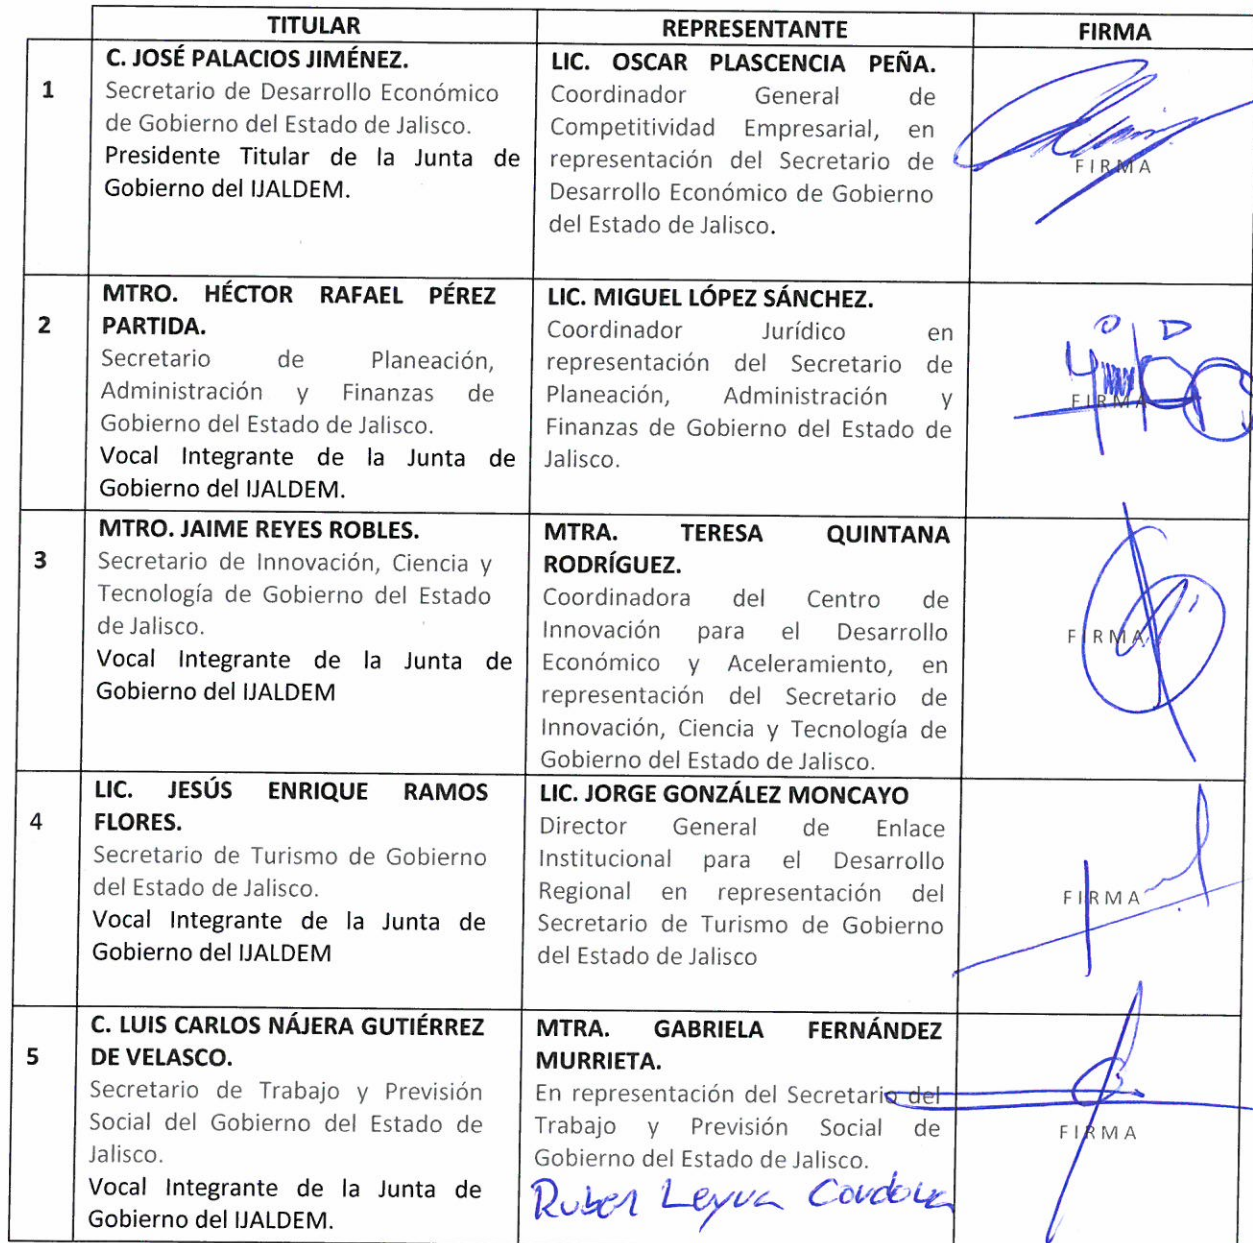 TITULAR REPRESENTANTE FIRMA
1
C. JOSÉ PALACIOS JIMÉNEZ.
Secretario de Desarrollo Económico
de Gobierno del Estado de Jalisco.
Presidente Titular de la Junta de
Gobierno del IJALDEM.
LIC. OSCAR PLASCENCIA PEÑA.
Coordinador General de
Competitividad Empresarial, en
representación del Secretario de
Desarrollo Económico de Gobierno
del Estado de Jalisco.
FIRMA
2
MTRO. HÉCTOR RAFAEL PÉREZ
PARTIDA.
Secretario de Planeación,
Administración y Finanzas de
Gobierno del Estado de Jalisco.
Vocal Integrante de la Junta de
Gobierno del IJALDEM.
LIC. MIGUEL LÓPEZ SÁNCHEZ.
Coordinador Jurídico en
representación del Secretario de
Planeación, Administración y
Finanzas de Gobierno del Estado de
Jalisco.
FIRMA
3
MTRO. JAIME REYES ROBLES.
Secretario de Innovación, Ciencia y
Tecnología de Gobierno del Estado
de Jalisco.
Vocal Integrante de la Junta de
Gobierno del IJALDEM
MTRA. TERESA QUINTANA
RODRÍGUEZ.
Coordinadora del Centro de
Innovación para el Desarrollo
Económico y Aceleramiento, en
representación del Secretario de
Innovación, Ciencia y Tecnología de
Gobierno del Estado de Jalisco.
FIRMA
4
LIC. JESÚS ENRIQUE RAMOS
FLORES.
Secretario de Turismo de Gobierno
del Estado de Jalisco.
Vocal Integrante de la Junta de
Gobierno del IJALDEM
LIC. JORGE GONZÁLEZ MONCAYO
Director General de Enlace
Institucional para el Desarrollo
Regional en representación del
Secretario de Turismo de Gobierno
del Estado de Jalisco
FIRMA
5
C. LUIS CARLOS NÁJERA GUTIÉRREZ
DE VELASCO.
Secretario de Trabajo y Previsión
Social del Gobierno del Estado de
Jalisco.
Vocal Integrante de la Junta de
Gobierno del IJALDEM.
MTRA. GABRIELA FERNÁNDEZ
MURRIETA.
En representación del Secretario del
Trabajo y Previsión Social de
Gobierno del Estado de Jalisco.
Ruben Leyva Cordova
FIRMA